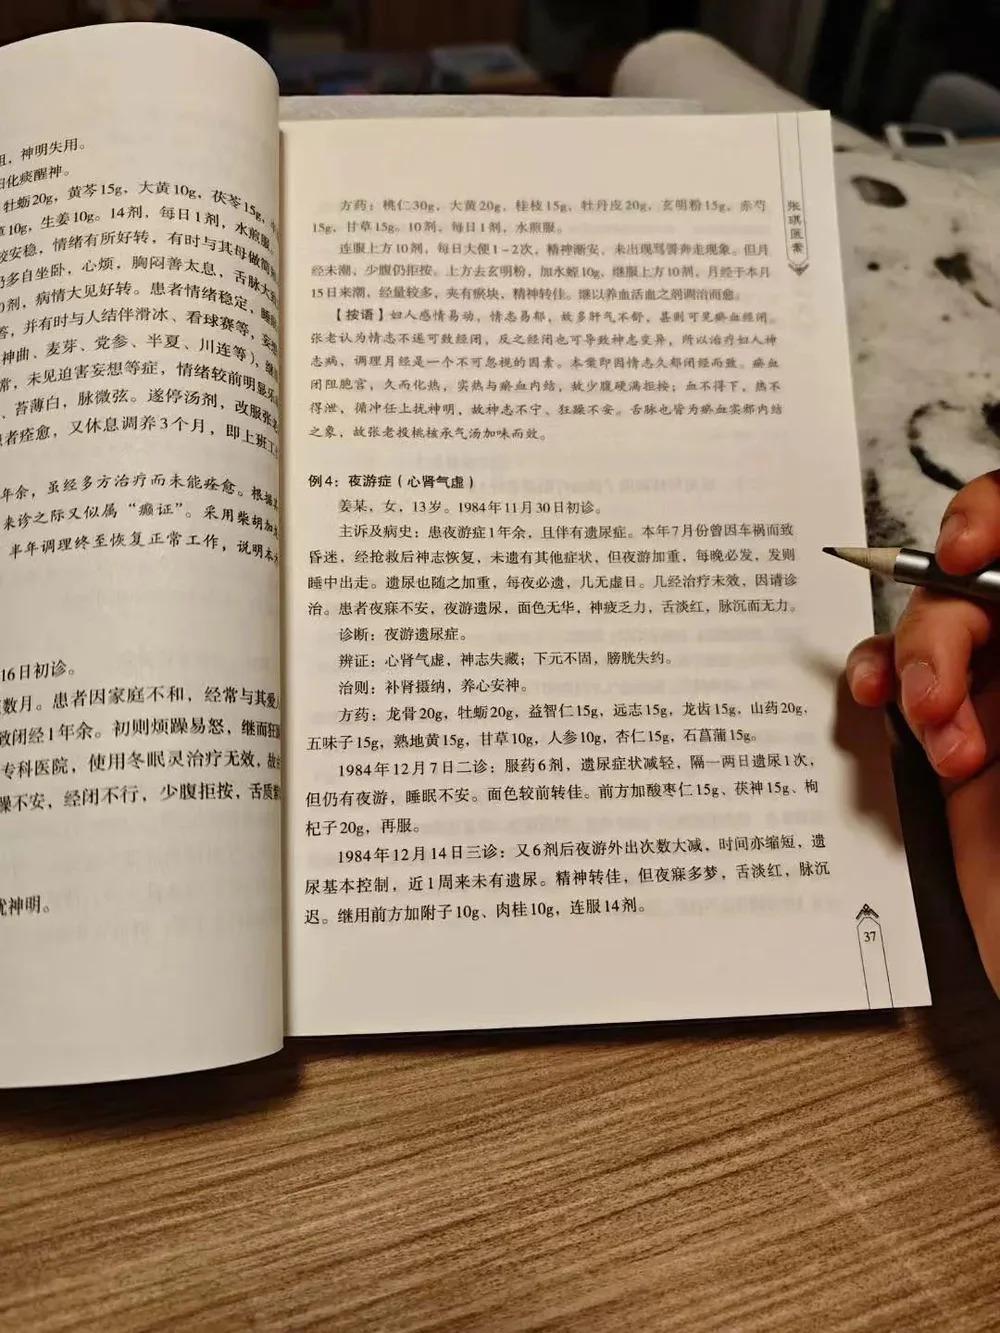 ，神明失用。
化痰醒神。
牡蛎20g，黄芩15g，大黄10g，茯苓15g，
10g，生姜10g。14剂，每日1剂，水煎服。
安稳，情绪有所好转，有时与其母做简
多自坐卧，心烦，胸闷善太息，舌脉大
剂，病情大见好转。患者情绪稳定，睡
，并有时与人结伴滑冰、看球赛等，妄
神曲、麦芽、党参、半夏、川连等），继
常，未见迫害妄想等症，情绪较前明显乐
、苔薄白，脉微弦。遂停汤剂，改服张老
者痊愈，又休息调养3个月，即上班工
年余，虽经多方治疗而未能痊愈。根据
来诊之际又似属“癫证”。采用柴胡加
半年调理终至恢复正常工作，说明本
16日初诊。
数月。患者因家庭不和，经常与其爱
致闭经1年余。初则烦躁易怒，继而狂
专科医院，使用冬眠灵治疗无效，故
躁不安，经闭不行，少腹拒按，舌质紫
扰神明。
张琪医案
方药：桃仁30g，大黄20g，桂枝15g，牡丹皮20g，玄明粉15g，赤芍
15g，甘草15g。10剂，每日1剂，水煎服。
连服上方10剂，每日大便1~2次，精神渐安，未出现骂詈奔走现象。但月
经未潮，少腹仍拒按。上方去玄明粉，加水蛭10g，继服上方10剂，月经于本月
15日来潮，经量较多，夹有瘀块，精神转佳。继以养血活血之剂调治而愈。
【按语】妇人感情易动，情志易郁，故多肝气不舒，甚则可见瘀血经闭。
张老认为情志不遂可致经闭，反之经闭也可导致神志变异，所以治疗妇人神
志病，调理月经是一个不可忽视的因素。本案即因情志久郁闭经而致。瘀血
闭阻胞宫，久而化热，实热与瘀血内结，故少腹硬满拒按；血不得下，热不
得泄，循冲任上扰神明，故神志不宁、狂躁不安。舌脉也皆为瘀血实邪内结
之象，故张老投桃核承气汤加味而效。
例4：夜游症（心肾气虚）
姜某，女，13岁。1984年11月30日初诊。
主诉及病史：患夜游症1年余，且伴有遗尿症。本年7月份曾因车祸而致
昏迷，经抢救后神志恢复，未遗有其他症状，但夜游加重，每晚必发，发则
睡中出走。遗尿也随之加重，每夜必遗，几无虚日。几经治疗未效，因请诊
治。患者夜寐不安，夜游遗尿，面色无华，神疲乏力，舌淡红，脉沉而无力。
诊断：夜游遗尿症。
辨证：心肾气虚，神志失藏；下元不固，膀胱失约。
治则：补肾摄纳，养心安神。
方药：龙骨20g，牡蛎20g，益智仁15g，远志15g，龙齿15g，山药20g，
五味子15g，熟地黄15g，甘草10g，人参10g，杏仁15g，石菖蒲15g。
1984年12月7日二诊：服药6剂，遗尿症状减轻，隔一两日遗尿1次，
但仍有夜游，睡眠不安。面色较前转佳。前方加酸枣仁15g、茯神15g、枸
杞子20g，再服。
1984年12月14日三诊：又6剂后夜游外出次数大减，时间亦缩短，遗
尿基本控制，近1周来未有遗尿。精神转佳，但夜寐多梦，舌淡红，脉沉
迟。继用前方加附子10g、肉桂10g，连服14剂。
37